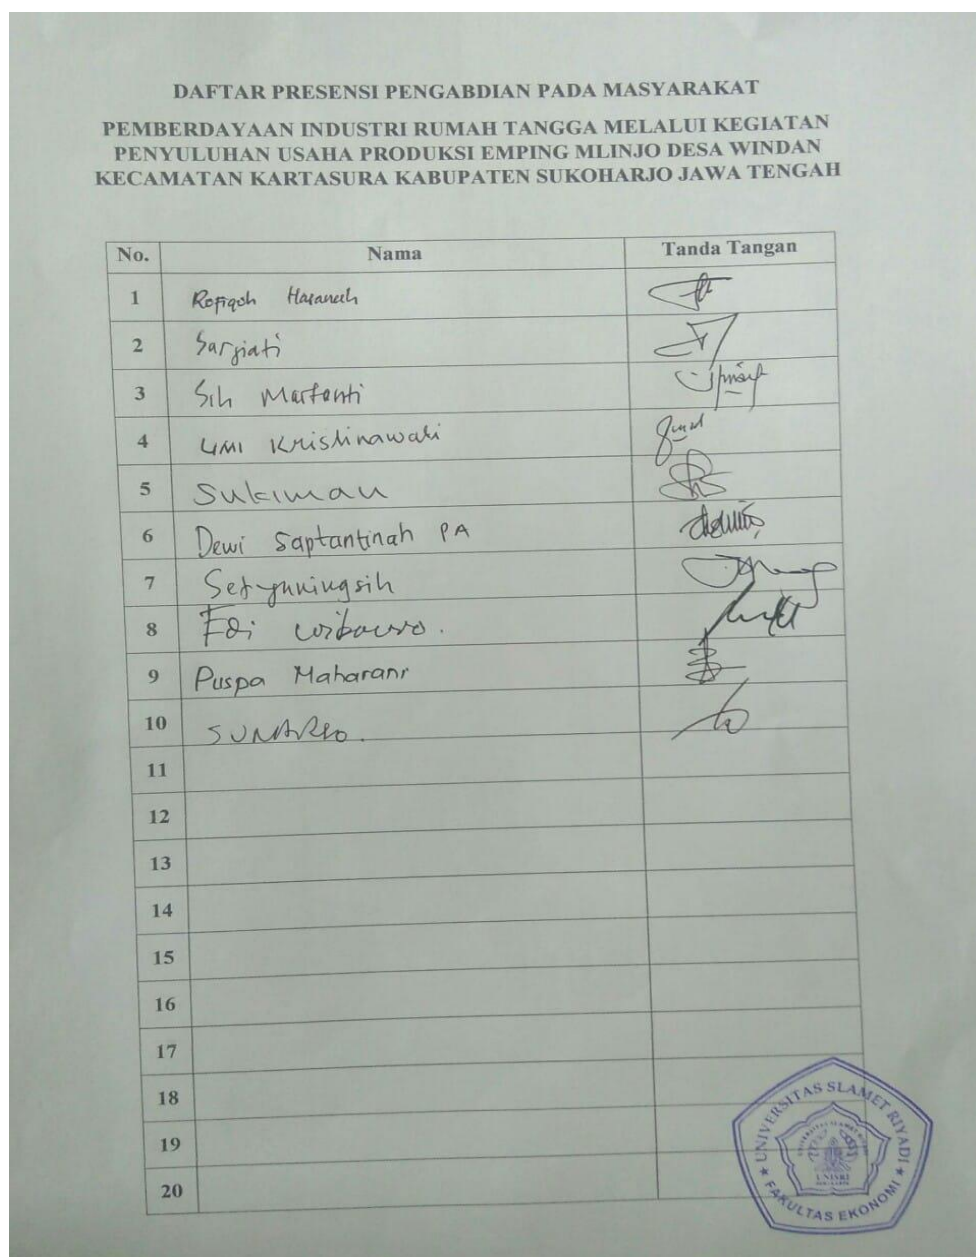 DAFTAR PRESENSI PENGABDIAN PADA MASYARAKAT
PEMBERDAYAAN INDUSTRI RUMAH TANGGA MELALUI KEGIATAN
PENYULUHAN USAHA PRODUKSI EMPING MLINJO DESA WINDAN
KECAMATAN KARTASURA KABUPATEN SUKOHARJO JAWA TENGAH
No. Nama Tanda Tangan
1 Rofiqoh Hasanah
2 Sargiati
3 Sih Martanti
4 UMI Kristinawati
5 Sukiman
6 Dewi Saptantinah PA
7 Setyaningsih
8 Edi wibowo.
9 Puspa Maharani
10 SUNARSO.
11
12
13
14
15
16
17
18
19
20
UNIVERSITAS SLAMET RIYADI
UNISRI
FAKULTAS EKONOMI